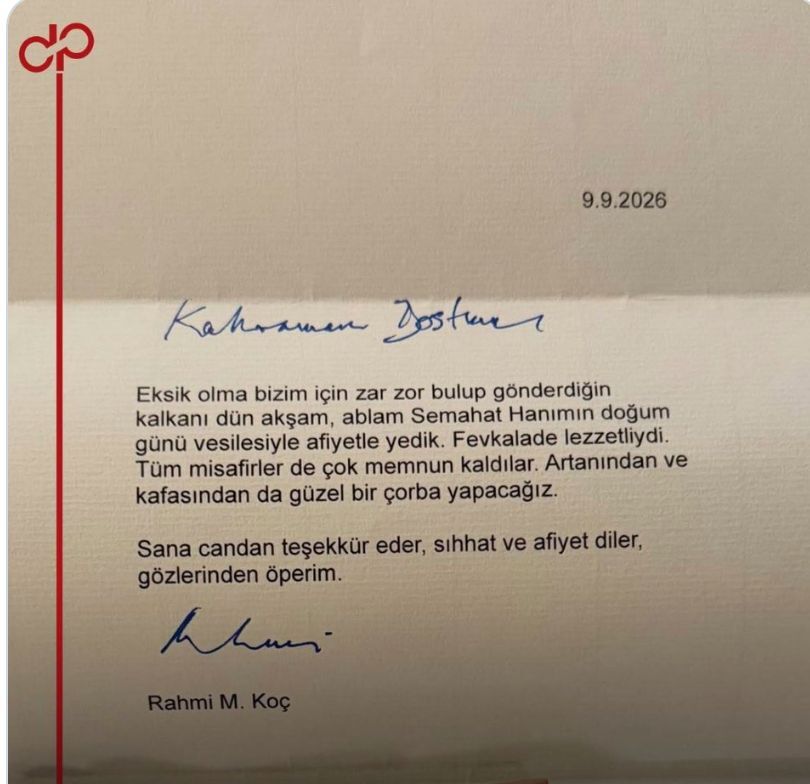 dp
9.9.2026
Kahraman Dostum
Eksik olma bizim için zar zor bulup gönderdiğin
kalkanı dün akşam, ablam Semahat Hanımın doğum
günü vesilesiyle afiyetle yedik. Fevkalade lezzetliydi.
Tüm misafirler de çok memnun kaldılar. Artanından ve
kafasından da güzel bir çorba yapacağız.
Sana candan teşekkür eder, sıhhat ve afiyet diler,
gözlerinden öperim.
Rahmi
Rahmi M. Koç